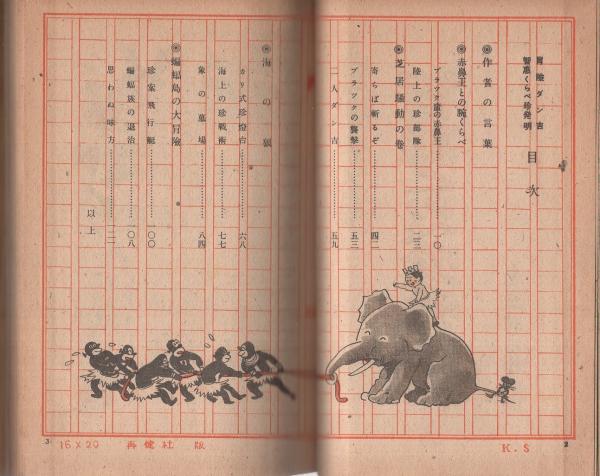 冒險ダン吉
智惠くらべ珍発明
目次
◎作者の言葉
◎赤鼻王との腕くらべ
ブラック島の赤鼻王……一〇
陸上の珍部隊……二三
◎芝居騒動の巻
寄らば斬るぞ……四二
ブラックの襲撃……五三
二人ダン吉……五九
◎海の狼
カリ式珍燈台……六八
海上の珍戰術……七七
象の墓場……八四
◎蝙蝠島の大冒險
珍案飛行艇……一〇〇
蝙蝠族の退治……一〇八
思わぬ味方……一二一
以上
3
16×20 再健社 版
K.S
2